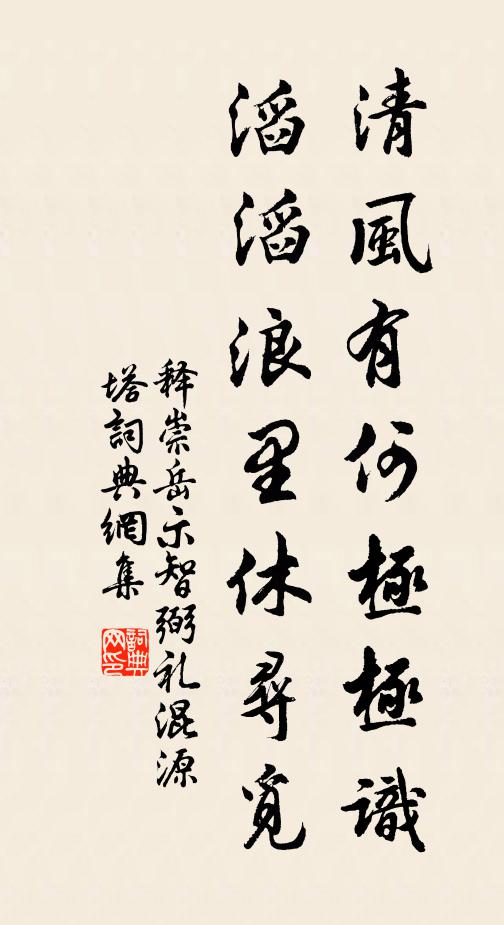 清風有何極極識
滔滔浪里休尋覓
释崇岳示智弼礼混源
塔詞典網集
詞典网印